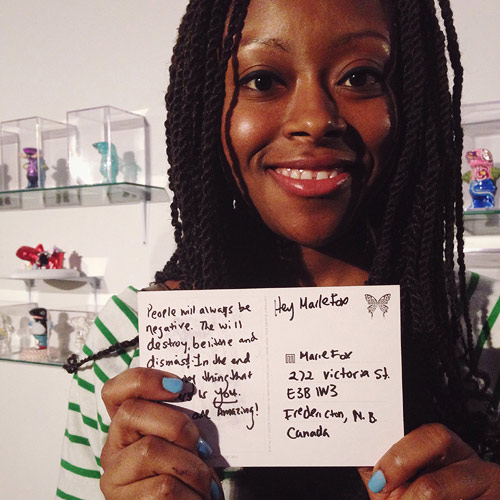 People will always be
negative. The will
destroy, belittle and
dismiss! In the end
thing that
is You.
are Amazing!
Hey Marie Fox
Marie Fox
272 Victoria St.
E3B 1W3
Fredericton, N.B.
Canada